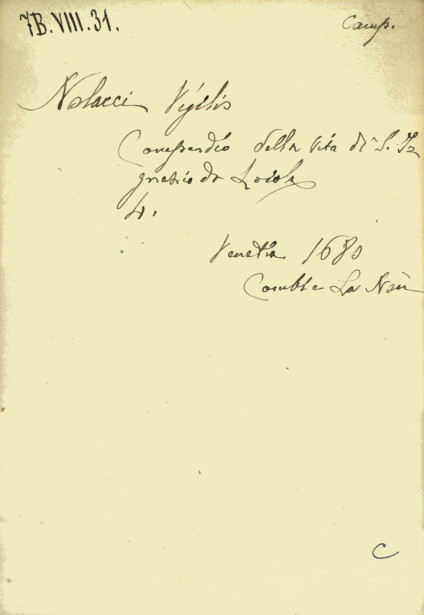 7B.VIII.31.
Camp.
Nolacci Vigilio
Compendio della vita di S. Ig
gnatio de Loiola
4.
Venetia 1680
Combi e La Noù
C